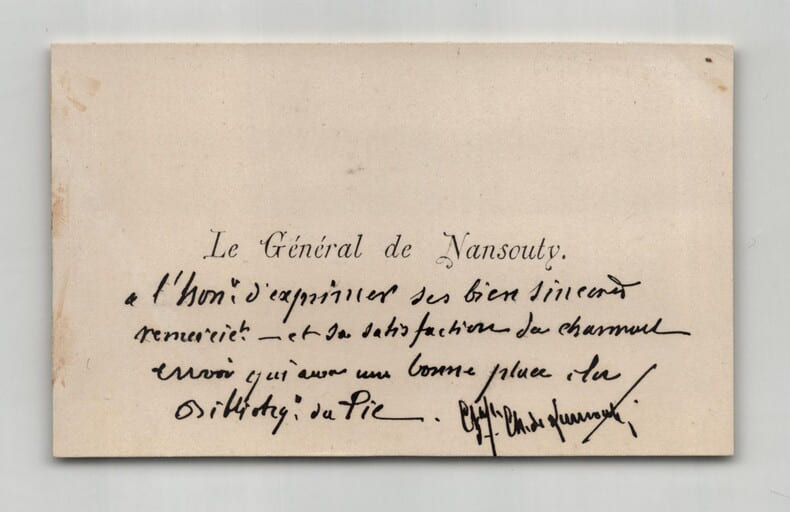 Le Général de Nansouty.
a l'hon.r d'exprimer ses bien sincères
remercie.ts — et sa satisfaction du charmant
envoi qui aura une bonne place à la
Bibliothq. du Pic — .
Ch. de Nansouty